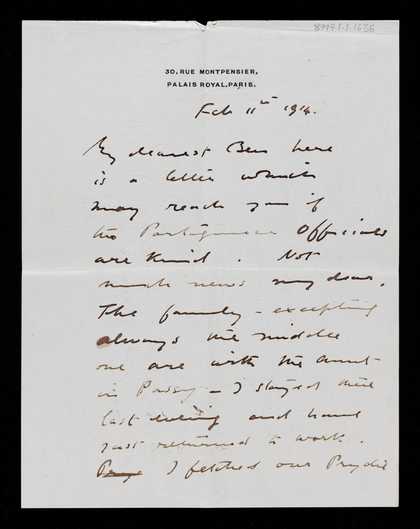 8799.1.1.1636
30, RUE MONTPENSIER,
PALAIS ROYAL, PARIS.
Feb 11th 1914.
My dearest Ben here
is a letter which
may reach you if
the Portuguese Officials
are kind. Not
much news my dear.
The family - excepting
always the middle
one are with the Aunt
in Passy - I stayed there
last evening and have
just returned to work.
I fetched our Prydie